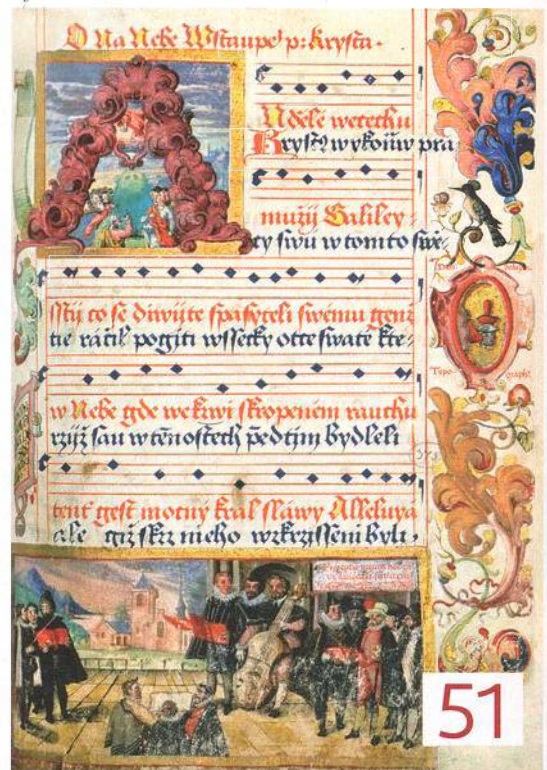 O Na Nebe Wstaupe p: Krysta.
Andele wetechu
Krystꝰ wykoüw pra
mužij Galiley
cy swu w tomto swě-
sstij co se diwijte spasyteli swému genž
tie ráčil pogiti wssecky otce swaté kte-
w Nebe gde we krwi skropeném rauchu
rzijž sau w těnostech před tjm bydleli
tent gest mocný král sláwy Alleluya
ale giž skrz nieho wzkrzjsseni byli,
Typo- graph?
373
51